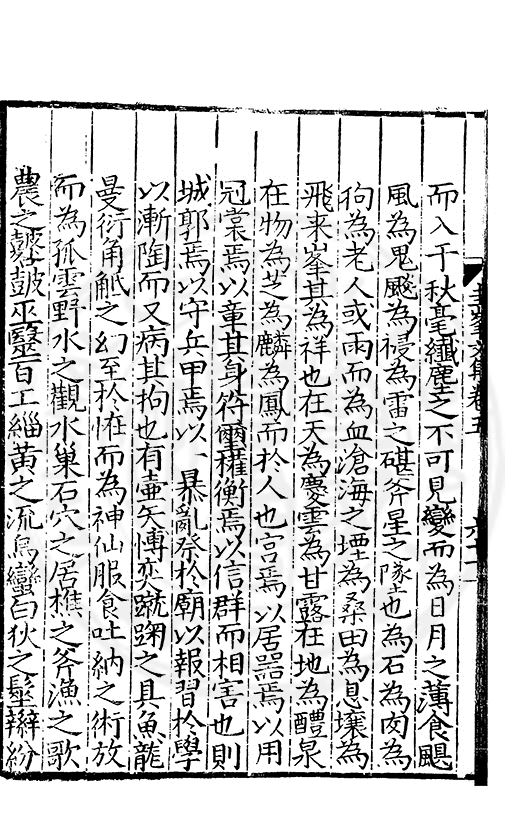 而入于秋毫纖麗之不可見變而為日月之薄食颶
風為鬼颷為祲為雷之碪斧星之隊也為石為肉為
狗為老人或雨而為血滄海之堙為桑田為息壤為
飛来峯其為祥也在天為慶雲為甘露在地為醴泉
在物為芝為麟為鳳而於人也宫焉以居器焉以用
冠裳焉以章其身符璽權衡焉以信群而相害也則
城郭焉以守兵甲焉以一暴亂祭於廟以報習於學
以漸陶而又病其拘也有壷矢愽奕蹴踘之具魚龍
曼衍角觝之幻至於恠而為神仙服食吐納之術放
而為孤雲野水之觀水巢石穴之居樵之斧漁之歌
農之鼛鼓巫醫百工緇黄之流烏蠻白狄之髽辮紛
文集卷五